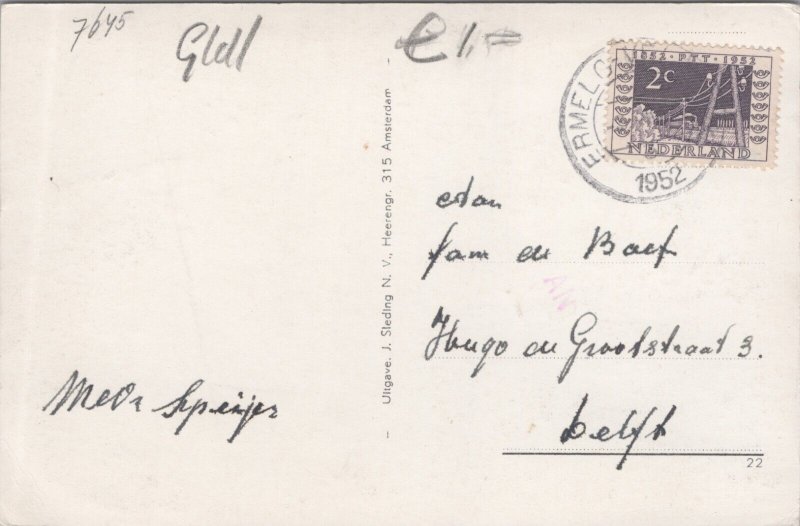 7645
Gld
€ 1,-
1852 · PTT · 1952
2c
NEDERLAND
ERMELO
1952
Aan
Fam de Boef
Hugo de Grootstraat 3.
Delft
22
Uitgave. J. Sleding N. V., Heerengr. 315 Amsterdam
Mevr Speijer